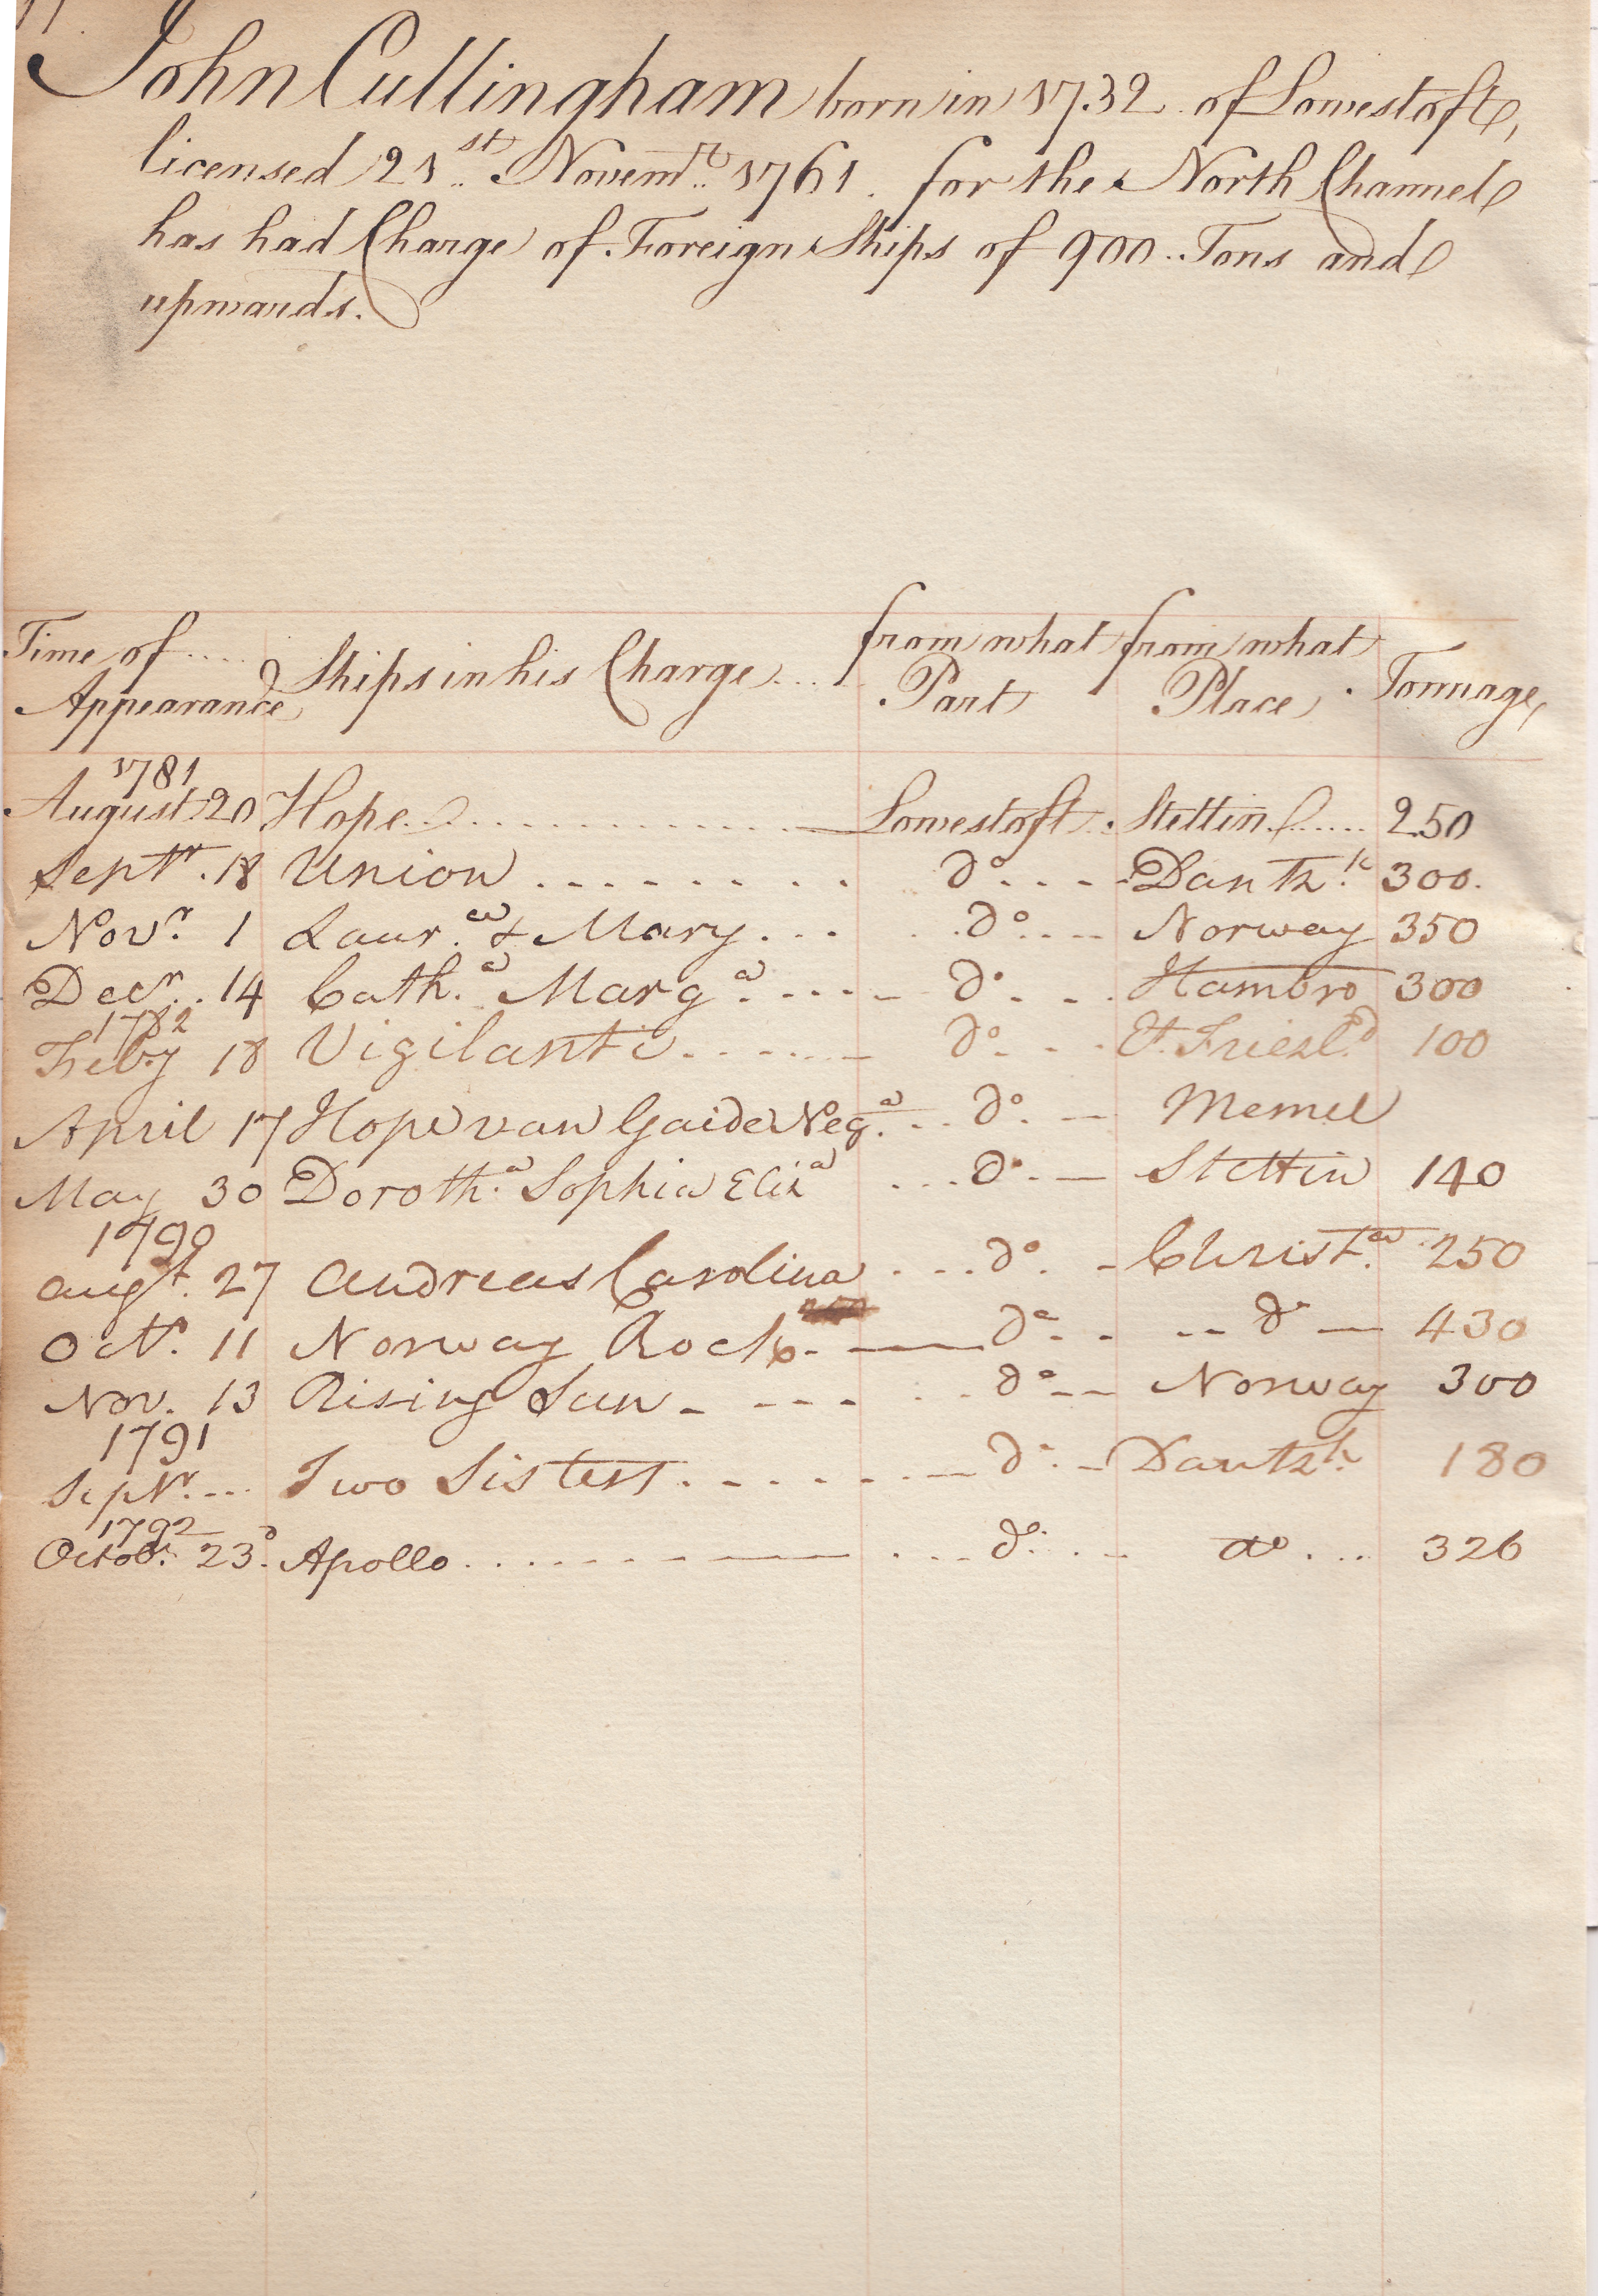 John Cullingham born in 1732 of Lowestoft,
licensed 21st Novemr 1761. for the North Channel
has had Charge of Foreign Ships of 900 Tons and
upwards.
Time of Appearance Ships in his Charge from what Part from what Place Tonnage
1781
August 20 Hope Lowestoft Stettin 250
Septr. 18 Union do Dantzk 300.
Novr. 1 Laura & Mary do Norway 350
Decr. 14 Catha. Marga. do Hambro 300
1782
Feby 18 Vigilantie do Et. Friesld 100
April 17 Hope van Gaide Nega. do Memel
May 30 Dorotha. Sophia Eliza do Stettin 140
1790
augt. 27 Andreas Carolina do Christa. 250
Octr. 11 Norway Rock do do 430
Nov. 13 Rising Sun do Norway 300
1791
Septr. Two Sisters do Dantzk 180
1792
Octobr. 23d. Apollo do do 326